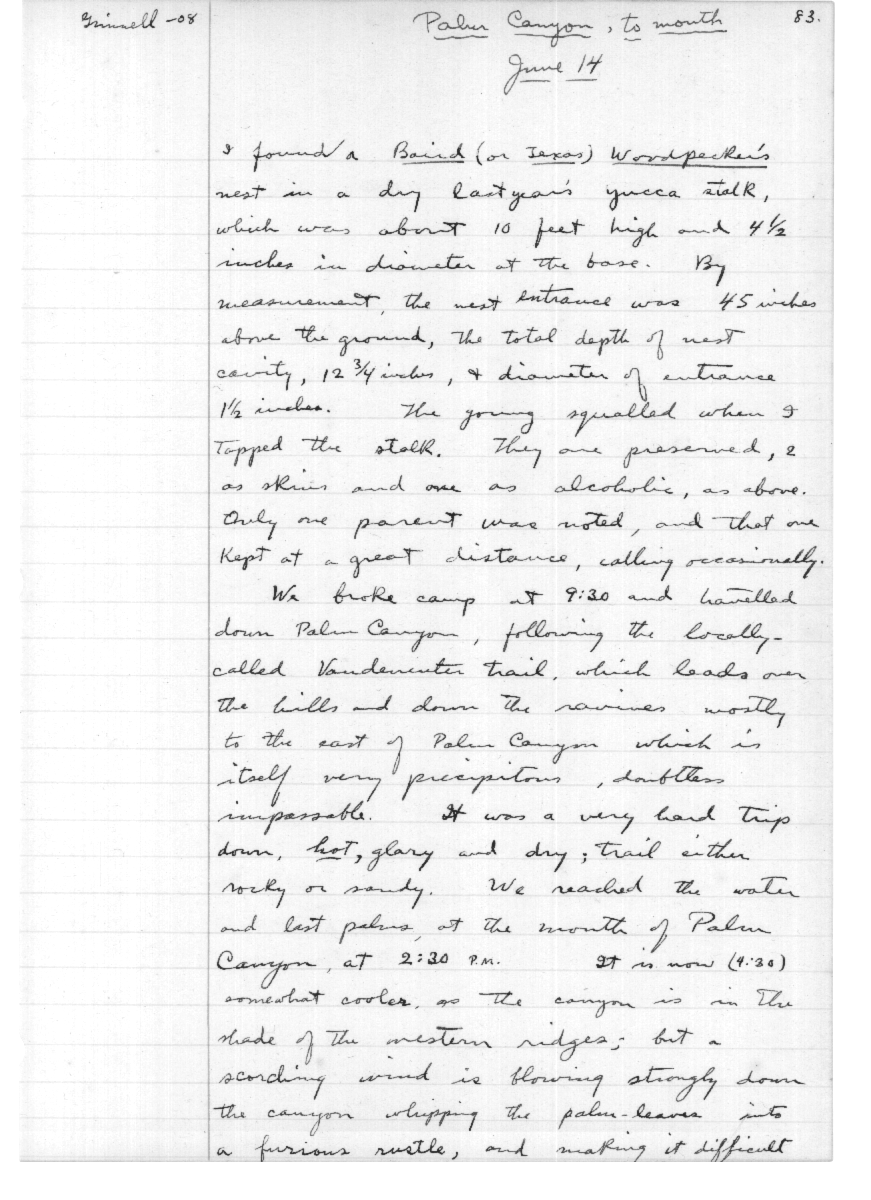 Grinnell -08
Palm Canyon, to mouth
83.
June 14
I found a Baird (or Texas) Woodpecker's
nest in a dry last year's yucca stalk,
which was about 10 feet high and 4 1/2
inches in diameter at the base. By
measurement, the nest entrance was 45 inches
above the ground, the total depth of nest
cavity, 12 3/4 inches, & diameter of entrance
1 1/2 inches. The young squalled when I
tapped the stalk. They are preserved, 2
as skins and one as alcoholic, as above.
Only one parent was noted, and that one
kept at a great distance, calling occasionally.
We broke camp at 9:30 and travelled
down Palm Canyon, following the locally-
called Vandeventer trail, which leads over
the hills and down the ravines mostly
to the east of Palm Canyon which is
itself very precipitous, doubtless
impassable. It was a very hard trip
down, hot, glary and dry; trail either
rocky or sandy. We reached the water
and last palms, at the mouth of Palm
Canyon, at 2:30 P.M. It is now (4:30)
somewhat cooler, as the canyon is in the
shade of the western ridges; but a
scorching wind is blowing strongly down
the canyon whipping the palm-leaves into
a furious rustle, and making it difficult